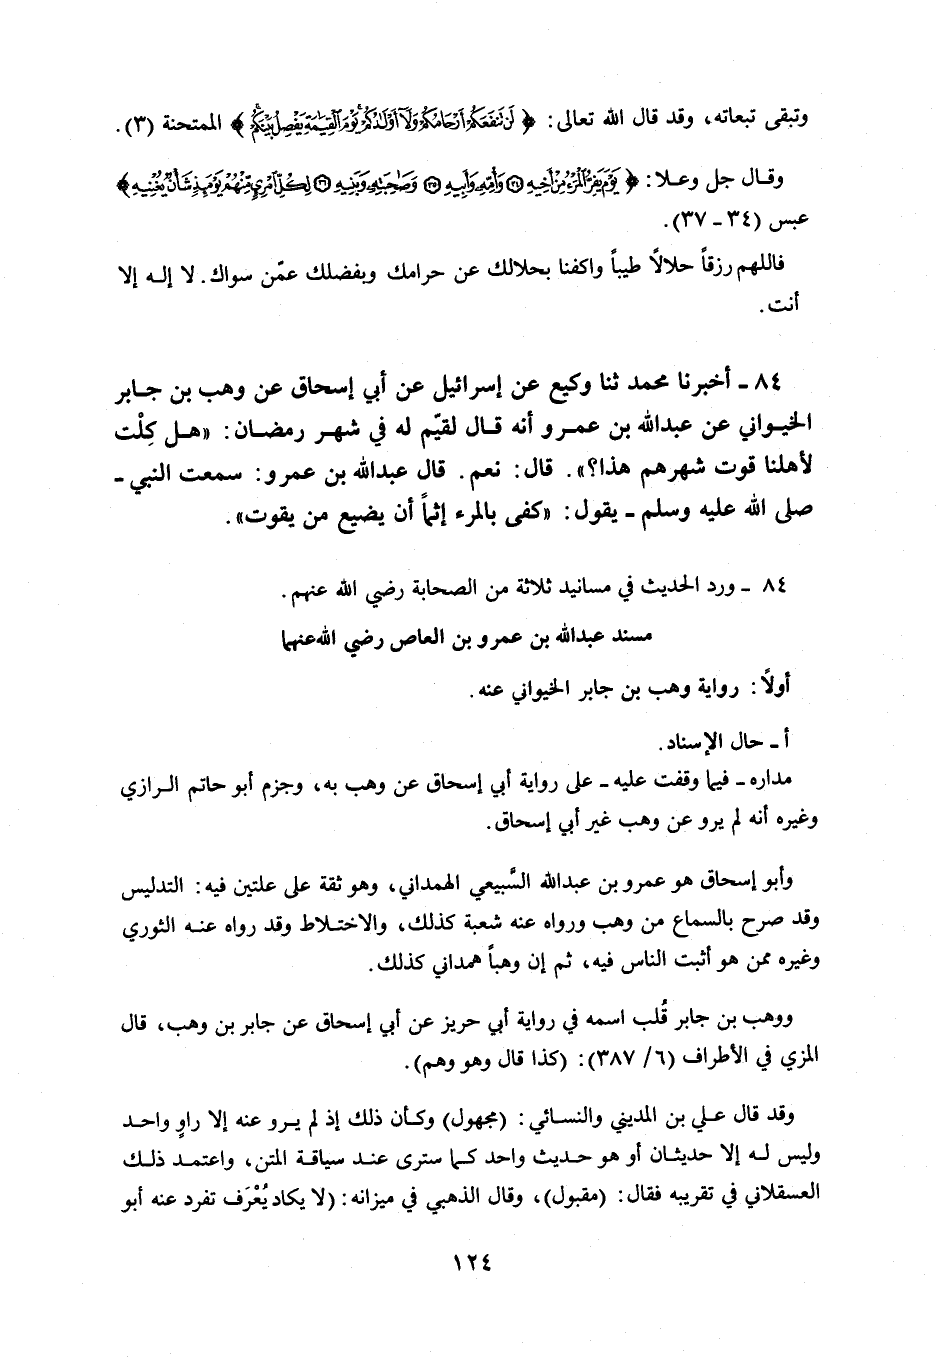 وتبقى تبعاته، وقد قال الله تعالى: ﴿ لَن تَنفَعَكُمْ أَرْحَامُكُمْ وَلَآ أَوْلَـٰدُكُمْ يَوْمَ ٱلْقِيَـٰمَةِ يَفْصِلُ بَيْنَكُمْ ﴾ الممتحنة (٣).
وقال جل وعلا: ﴿ يَوْمَ يَفِرُّ ٱلْمَرْءُ مِنْ أَخِيهِ ۝٣٤ وَأُمِّهِۦ وَأَبِيهِ ۝٣٥ وَصَـٰحِبَتِهِۦ وَبَنِيهِ ۝٣٦ لِكُلِّ ٱمْرِئٍ مِّنْهُمْ يَوْمَئِذٍ شَأْنٌ يُغْنِيهِ ﴾
عبس (٣٤ ـ ٣٧).
فاللهم رزقاً حلالاً طيباً واكفنا بحلالك عن حرامك وبفضلك عمّن سواك. لا إله إلا
أنت.
٨٤ ـ أخبرنا محمد ثنا وكيع عن إسرائيل عن أبي إسحاق عن وهب بن جابر
الخيواني عن عبدالله بن عمرو أنه قال لقيّم له في شهر رمضان: «هل كِلْت
لأهلنا قوت شهرهم هذا؟». قال: نعم. قال عبدالله بن عمرو: سمعت النبي ـ
صلى الله عليه وسلم ـ يقول: «كفى بالمرء إثماً أن يضيع من يقوت».
٨٤ ـ ورد الحديث في مسانيد ثلاثة من الصحابة رضي الله عنهم.
مسند عبدالله بن عمرو بن العاص رضي الله عنهما
أولاً: رواية وهب بن جابر الخيواني عنه.
أ ـ حال الإسناد.
مداره ـ فيما وقفت عليه ـ على رواية أبي إسحاق عن وهب به، وجزم أبو حاتم الرازي
وغيره أنه لم يرو عن وهب غير أبي إسحاق.
وأبو إسحاق هو عمرو بن عبدالله السَّبيعي الهمداني، وهو ثقة على علتين فيه: التدليس
وقد صرح بالسماع من وهب ورواه عنه شعبة كذلك، والاختلاط وقد رواه عنه الثوري
وغيره ممن هو أثبت الناس فيه، ثم إن وهباً همداني كذلك.
ووهب بن جابر قُلب اسمه في رواية أبي حريز عن أبي إسحاق عن جابر بن وهب، قال
المزي في الأطراف (٦/ ٣٨٧): (كذا قال وهو وهم).
وقد قال علي بن المديني والنسائي: (مجهول) وكأن ذلك إذ لم يرو عنه إلا راوٍ واحد
وليس له إلا حديثان أو هو حديث واحد كما سترى عند سياقة المتن، واعتمد ذلك
العسقلاني في تقريبه فقال: (مقبول)، وقال الذهبي في ميزانه: (لا يكاد يُعْرَف تفرد عنه أبو
١٢٤